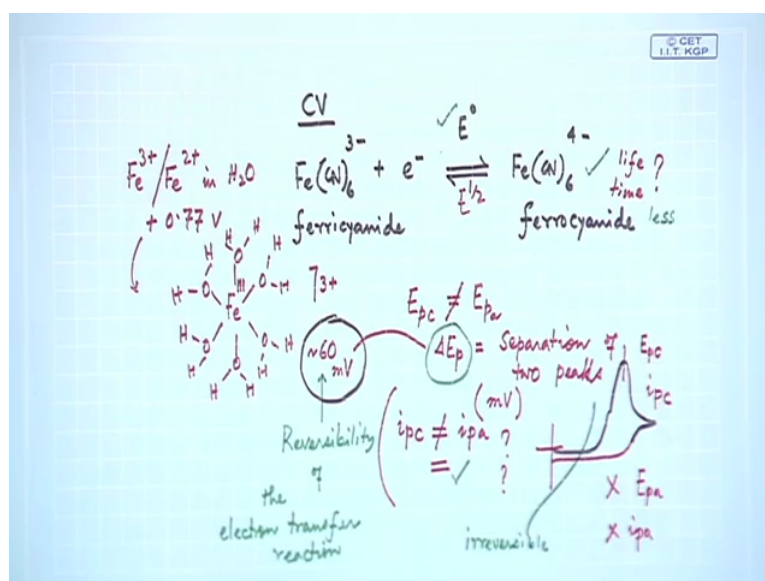 © CET
I.I.T. KGP
CV
✓ E°
Fe³⁺/Fe²⁺ in H₂O
+ 0.77 V
Fe(CN)₆³⁻ + e⁻ ⇌ Fe(CN)₆⁴⁻ ✓ life time ?
E1/2
ferricyanide
ferrocyanide
less
H H
H H
O
H-O O-H
III
Fe
]3+
H-O O-H
H H
O
H H
Epc ≠ Epa
~60 mV
ΔEp = Separation of two peaks
(mV)
Epc
ipc
Reversibility
of
the
electron transfer
reaction
ipc ≠ ipa ?
= ✓ ?
irreversible
X Epa
X ipa